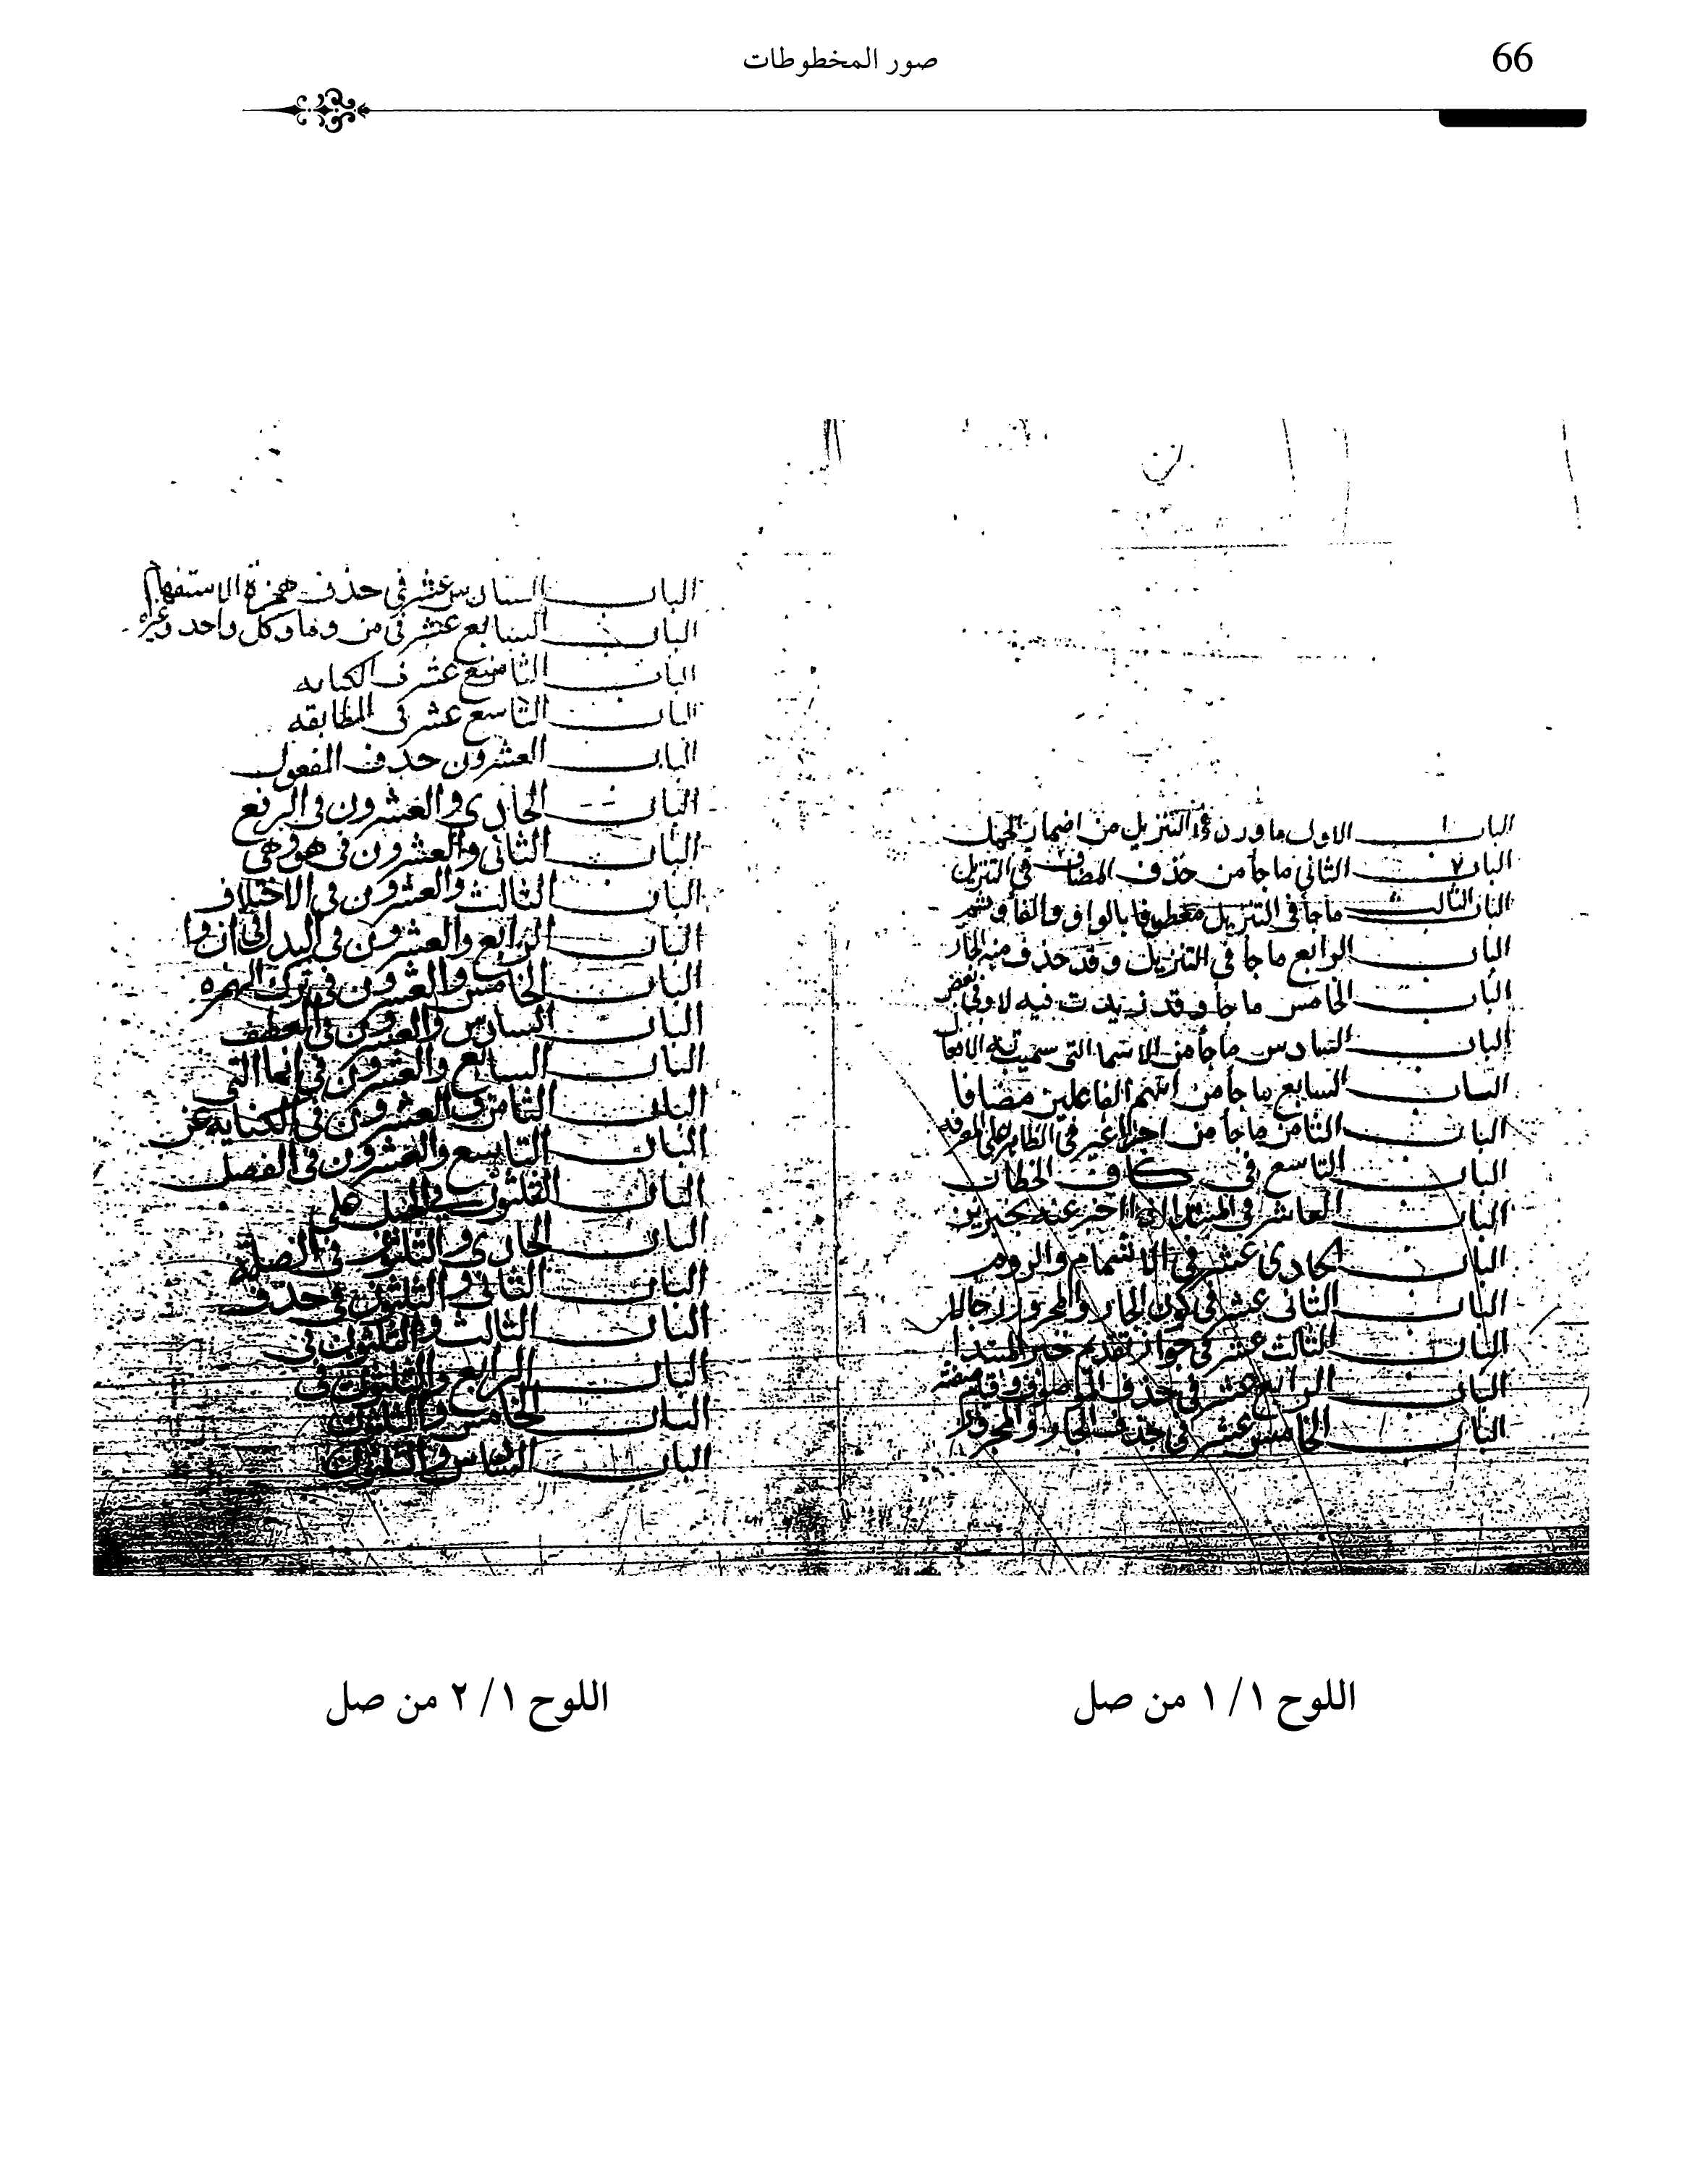 66
صور المخطوطات
الباب الاول ما ورد في التنزيل من اضمار الجمل
الباب الثاني ما جأ من حذف المضاف في التنزيل
الباب الثالث ما جأ في التنزيل معطوفا بالواو والفأ و
الباب الرابع ما جأ في التنزيل وقد حذف منه الجار
الباب الخامس ما جأ وقد زيدت فيه لا وفي بعض
الباب السادس ما جأ من الاسما التي سميت به الافعال
الباب السابع ما جأ من اسم الفاعلين مضافا
الباب الثامن ما جأ من اجرا غير في الظاهر على المعرفه
الباب التاسع في كاف الخطاب
الباب العاشر في المبتدا
الباب الحادي عشر في الاشمام والروم
الباب الثاني عشر في كون الجار والمجرور حالا
الباب الثالث عشر في جواز تقديم خبر المبتدا
الباب الرابع عشر في حذف الموصوف
الباب الخامس عشر في حذف الجار والمجرور
الباب السادس عشر في حذف همزة الاستفهام
الباب السابع عشر في من وما وكل واحد وغيره
الباب عشر ف الكنايه
الباب التاسع عشر في المطابقه
الباب العشرون حذف المفعول
الباب الحادي والعشرون في الرفع
الباب الثاني والعشرون في هو وهي
الباب الثالث والعشرون في الاختلاف
الباب الرابع والعشرون في البدل
الباب الخامس والعشرون في ترك الهمزه
الباب السادس والعشرون في العطف
الباب السابع والعشرون في التي
الباب الثامن والعشرون في الكنايه عن
الباب التاسع والعشرون في الفصل
الباب الثلثون في الحمل على
الباب الحادي والثلثون في الصلة
الباب الثاني والثلثون في حذف
الباب الثالث والثلثون في
الباب الرابع والثلثون في
الباب الخامس والثلثون
الباب السادس والثلثون
اللوح ١/ ١ من صل
اللوح ١/ ٢ من صل